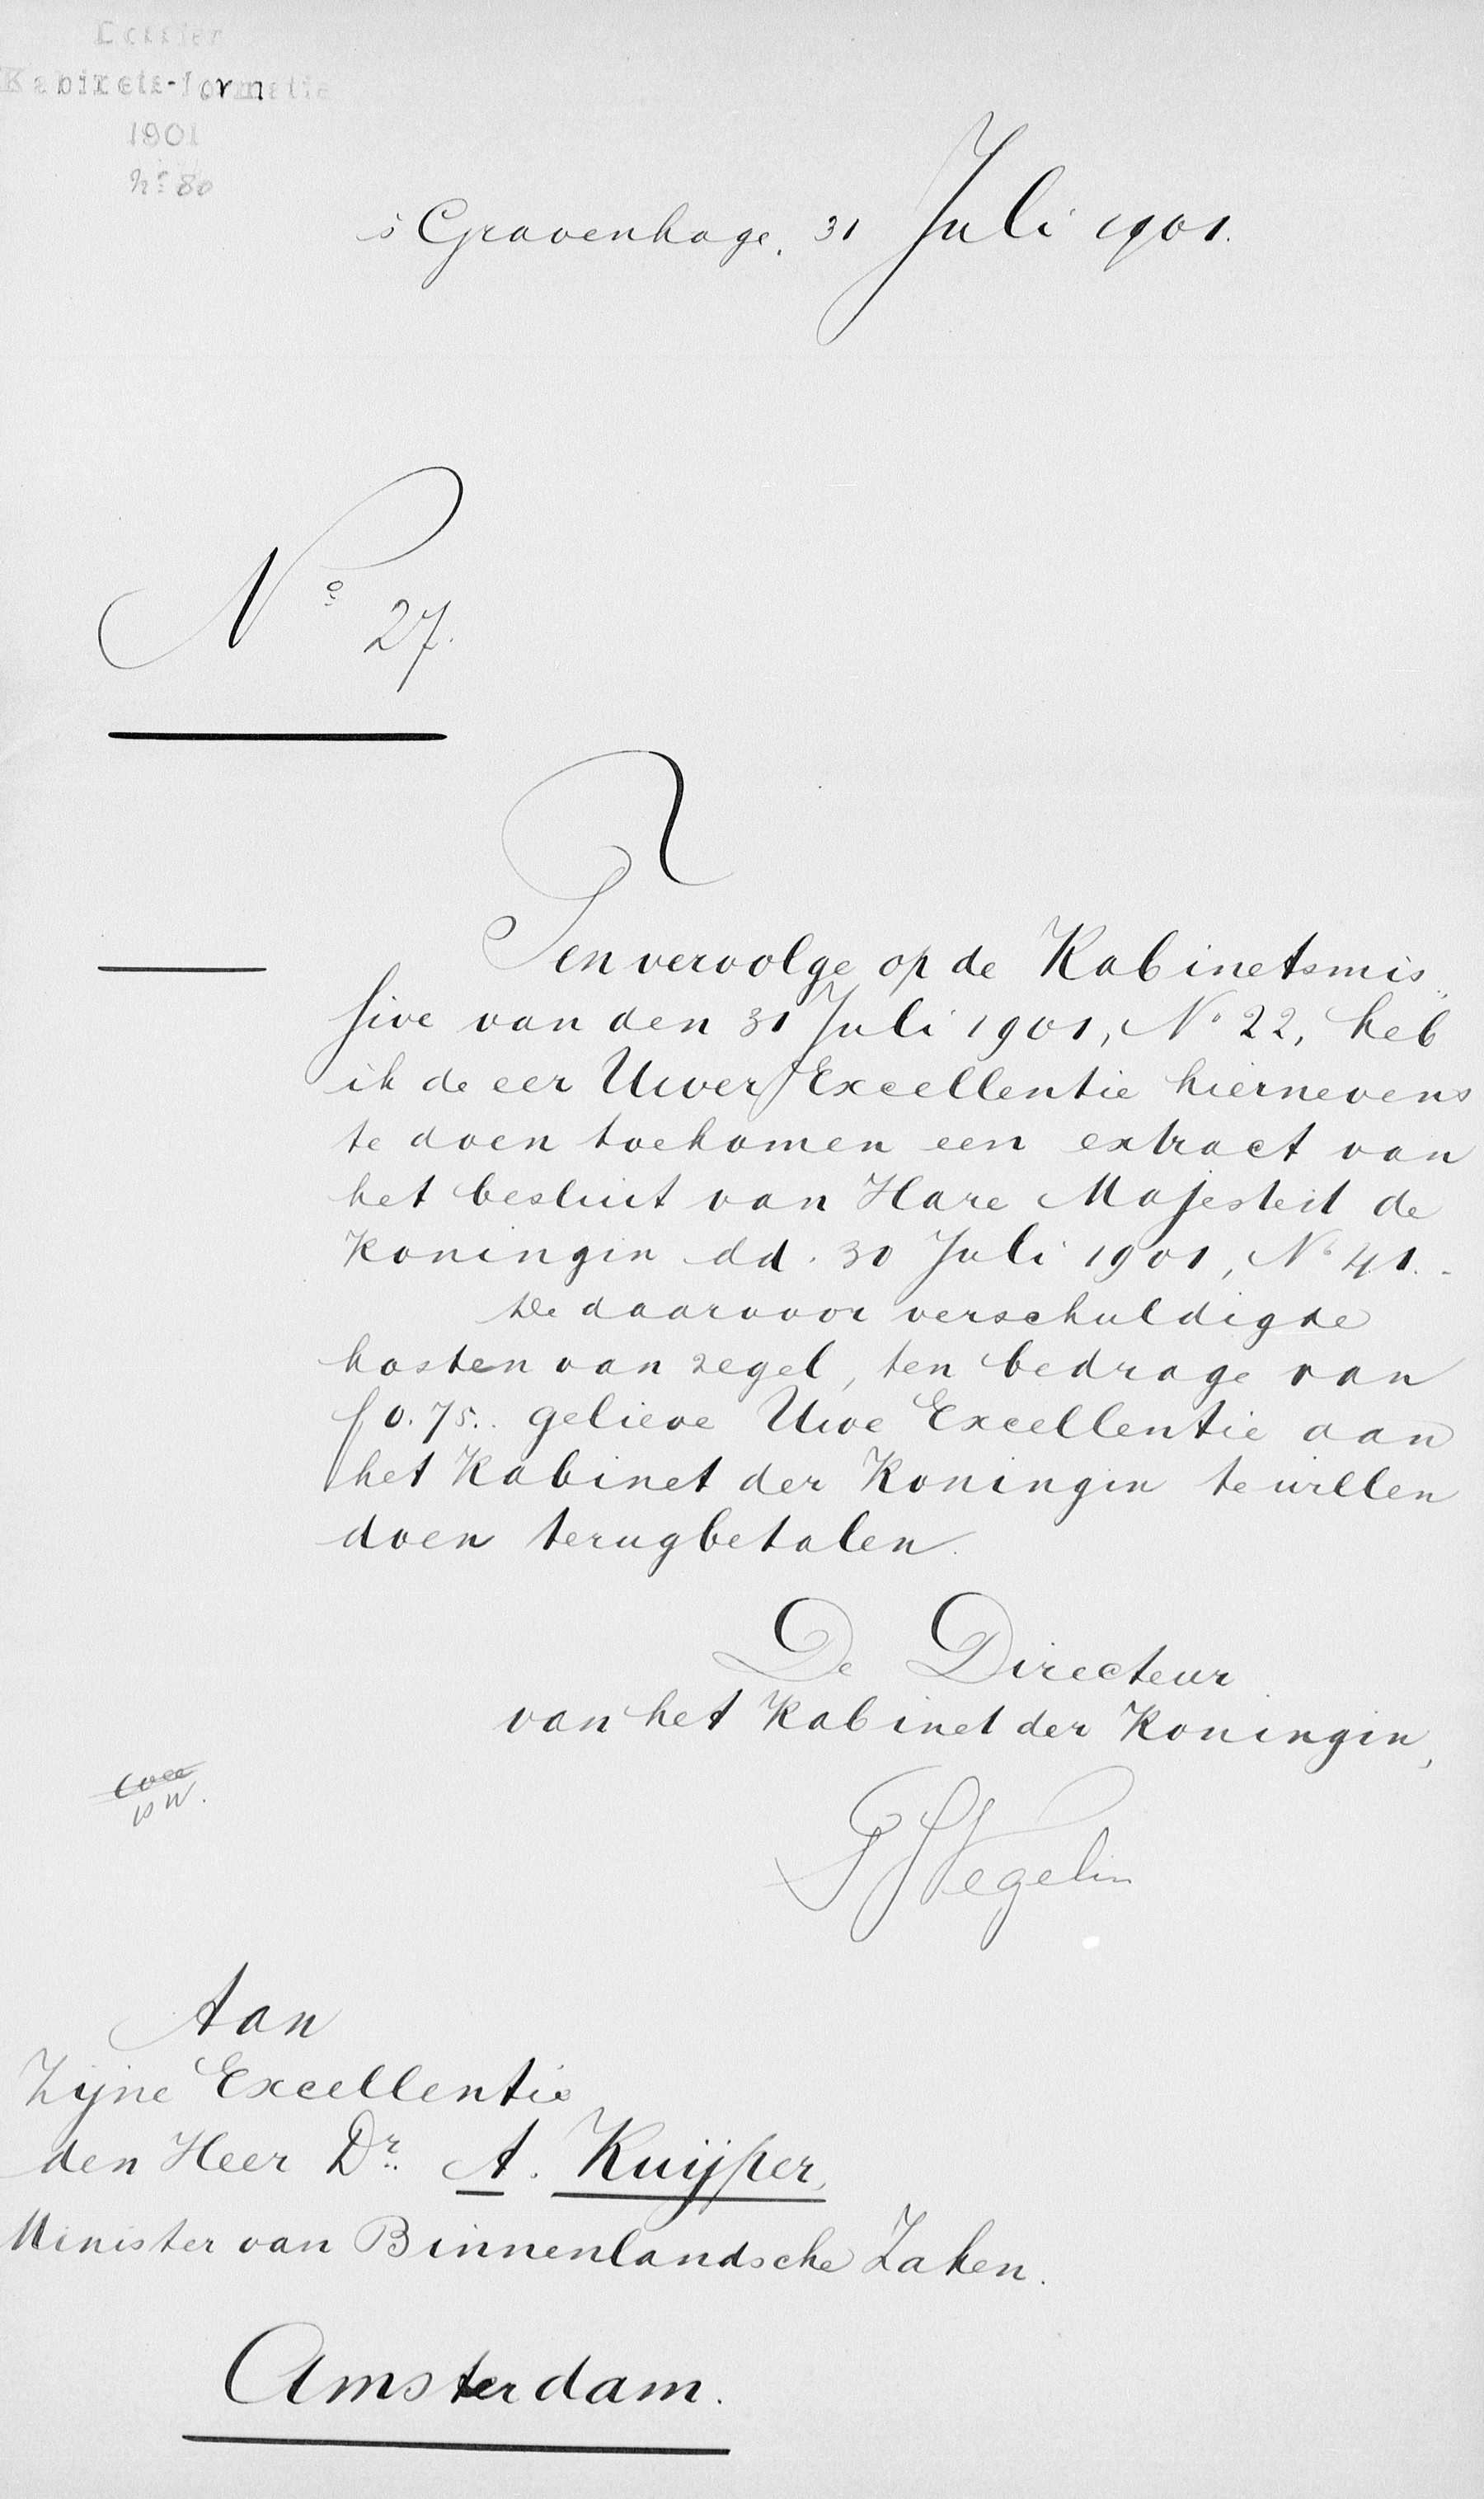 Dossier
Kabinets-formatie
1901
nr 80
's Gravenhage, 31 Juli 1901.
No 27.
Ten vervolge op de Kabinetsmis„
sive van den 31 Juli 1901, No 22, heb
ik de eer Uwer Excellentie hiernevens
te doen toekomen een extract van
het besluit van Hare Majesteit de
Koningin dd. 30 Juli 1901, No 41.
De daarvoor verschuldigde
kosten van zegel, ten bedrage van
f 0.75. gelieve Uwe Excellentie aan
het Kabinet der Koningin te willen
doen terugbetalen.
De Directeur
van het Kabinet der Koningin,
P J Vegelin
Aan
Zijne Excellentie
den Heer Dr. A. Kuijper,
Minister van Binnenlandsche Zaken.
Amsterdam.